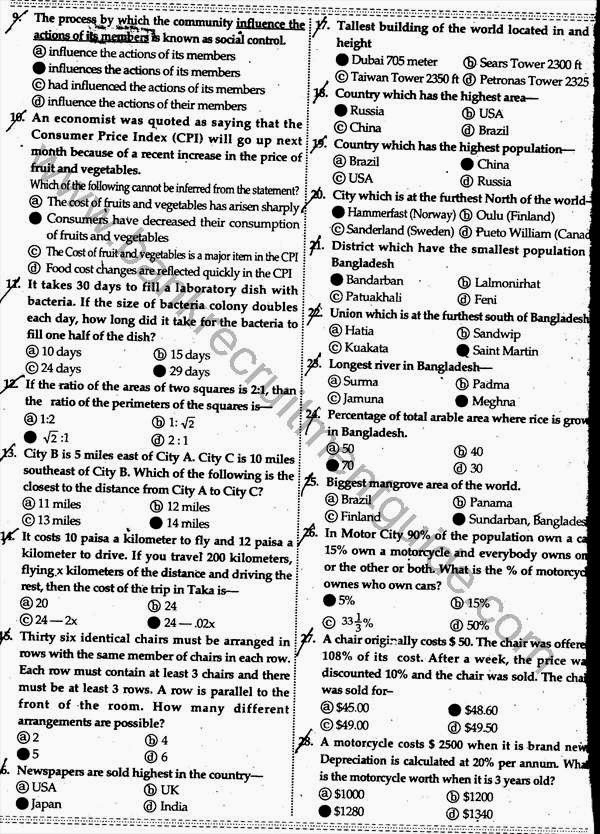 9. The process by which the community influence the
actions of its members is known as social control.
ⓐ influence the actions of its members
● influences the actions of its members
ⓒ had influenced the actions of its members
ⓓ influence the actions of their members
10. An economist was quoted as saying that the
Consumer Price Index (CPI) will go up next
month because of a recent increase in the price of
fruit and vegetables.
Which of the following cannot be inferred from the statement?
ⓐ The cost of fruit and vegetables has arisen sharply
● Consumers have decreased their consumption
of fruits and vegetables
ⓒ The Cost of fruit and vegetables is a major item in the CPI
ⓓ Food cost changes are reflected quickly in the CPI
11. It takes 30 days to fill a laboratory dish with
bacteria. If the size of bacteria colony doubles
each day, how long did it take for the bacteria to
fill one half of the dish?
ⓐ 10 days ⓑ 15 days
ⓒ 24 days ● 29 days
12. If the ratio of the areas of two squares is 2:1, than
the ratio of the perimeters of the squares is—
ⓐ 1:2 ⓑ 1: √2
● √2 :1 ⓓ 2 : 1
13. City B is 5 miles east of City A. City C is 10 miles
southeast of City B. Which of the following is the
closest to the distance from City A to City C?
ⓐ 11 miles ⓑ 12 miles
ⓒ 13 miles ● 14 miles
14. It costs 10 paisa a kilometer to fly and 12 paisa a
kilometer to drive. If you travel 200 kilometers,
flying x kilometers of the distance and driving the
rest, then the cost of the trip in Taka is—
ⓐ 20 ⓑ 24
ⓒ 24 — 2x ● 24 — .02x
15. Thirty six identical chairs must be arranged in
rows with the same member of chairs in each row.
Each row must contain at least 3 chairs and there
must be at least 3 rows. A row is parallel to the
front of the room. How many different
arrangements are possible?
ⓐ 2 ⓑ 4
● 5 ⓓ 6
6. Newspapers are sold highest in the country—
ⓐ USA ⓑ UK
● Japan ⓓ India
17. Tallest building of the world located in and
height
● Dubai 705 meter ⓑ Sears Tower 2300 ft
ⓒ Taiwan Tower 2350 ft ⓓ Petronas Tower 2325
18. Country which has the highest area—
● Russia ⓑ USA
ⓒ China ⓓ Brazil
19. Country which has the highest population—
ⓐ Brazil ● China
ⓒ USA ⓓ Russia
20. City which is at the furthest North of the world—
● Hammerfast (Norway) ⓑ Oulu (Finland)
ⓒ Sanderland (Sweden) ⓓ Pueto William (Canad
21. District which have the smallest population
Bangladesh
● Bandarban ⓑ Lalmonirhat
ⓒ Patuakhali ⓓ Feni
22. Union which is at the furthest south of Bangladesh
ⓐ Hatia ⓑ Sandwip
ⓒ Kuakata ● Saint Martin
23. Longest river in Bangladesh—
ⓐ Surma ⓑ Padma
ⓒ Jamuna ● Meghna
24. Percentage of total arable area where rice is grow
in Bangladesh.
ⓐ 50 ⓑ 40
● 70 ⓓ 30
25. Biggest mangrove area of the world.
ⓐ Brazil ⓑ Panama
ⓒ Finland ● Sundarban, Banglades
26. In Motor City 90% of the population own a ca
15% own a motorcycle and everybody owns on
or the other or both. What is the % of motorcyc
ownes who own cars?
● 5% ⓑ 15%
ⓒ 33 1/3 % ⓓ 50%
27. A chair originally costs $ 50. The chair was offere
108% of its cost. After a week, the price wa
discounted 10% and the chair was sold. The chai
was sold for–
ⓐ $45.00 ● $48.60
ⓒ $49.00 ⓓ $49.50
28. A motorcycle costs $ 2500 when it is brand new
Depreciation is calculated at 20% per annum. Wha
is the motorcycle worth when it is 3 years old?
ⓐ $1000 ⓑ $1200
● $1280 ⓓ $1340
www.bankrecruitmentguide.com